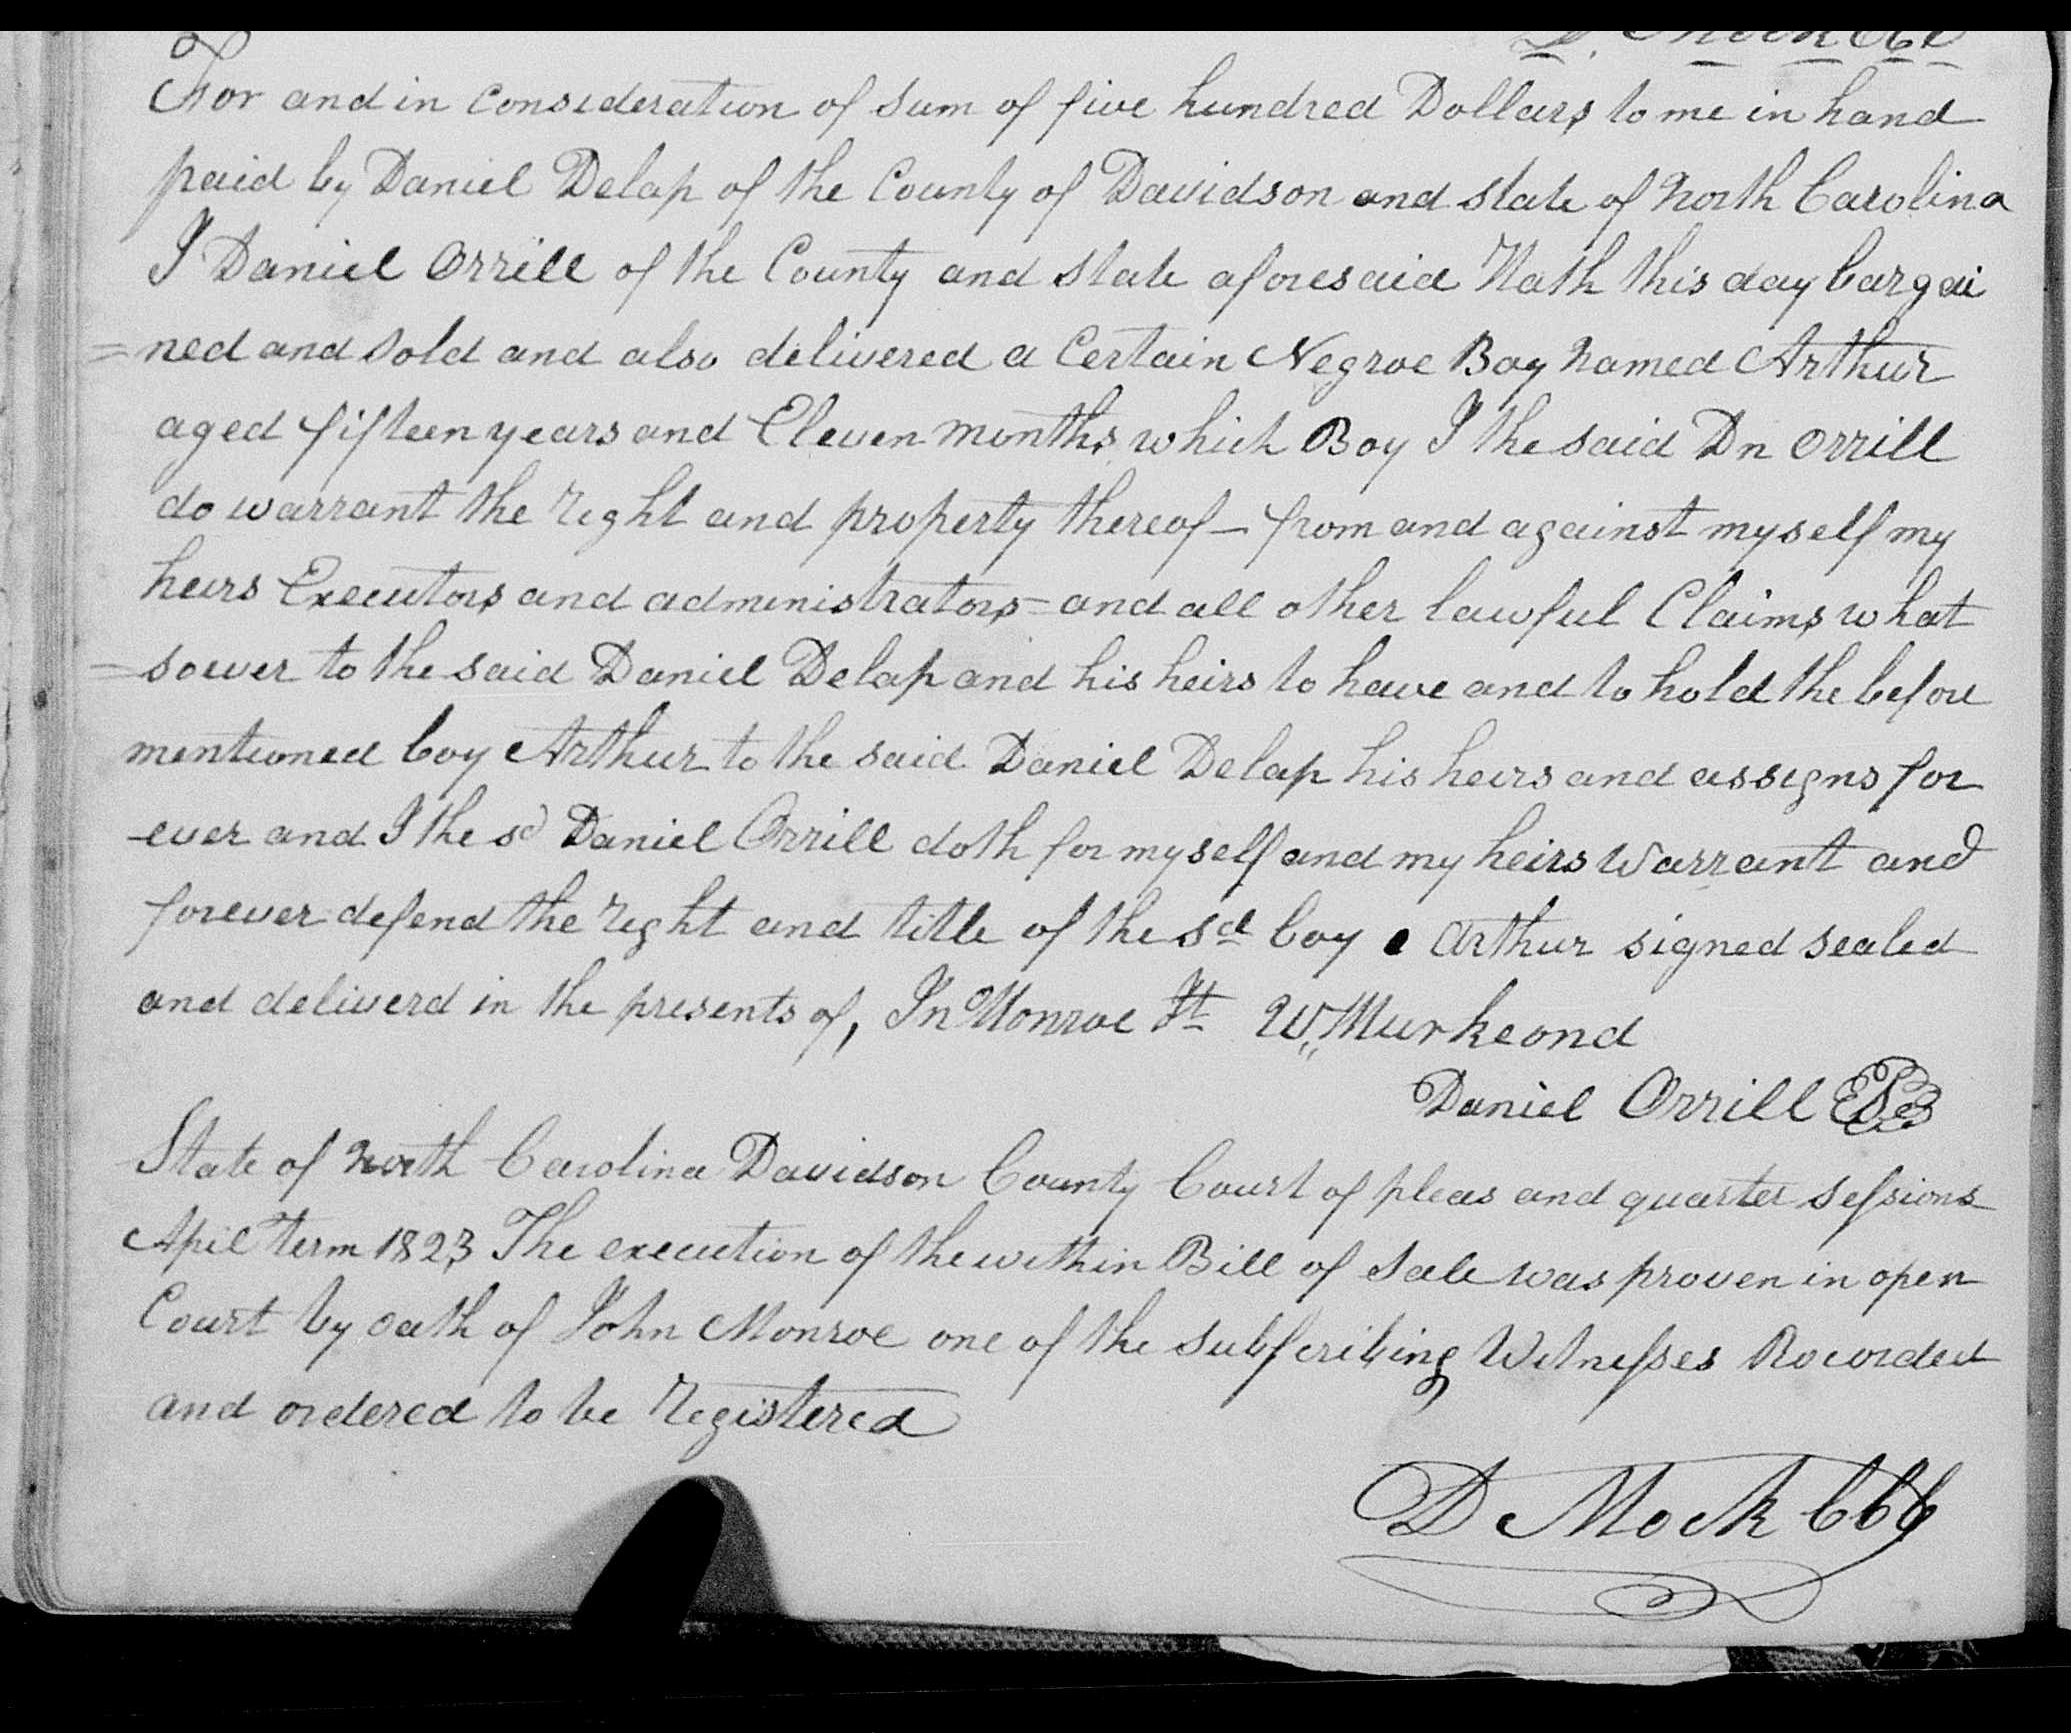 D. Mock CCC
For and in consideration of sum of five hundred Dollars to me in hand
paid by Daniel Delap of the County of Davidson and state of North Carolina
I Daniel Orrill of the County and state aforesaid Hath this day bargai
=ned and sold and also delivered a Certain Negroe Boy Named Arthur
aged fifteen years and Eleven months which Boy I the said Dn Orrill
do warrant the right and property thereof - from and against myself my
heirs Executors and administrators - and all other lawful Claims what
=sower to the said Daniel Delap and his heirs to have and to hold the before
mentioned boy Arthur to the said Daniel Delap his heirs and assigns for
-ever and I the sd Daniel Orrill doth for myself and my heirs Warrant and
forever defend the right and title of the sd boy Arthur signed sealed
and deliverd in the presents of, Jno Monroe Jt Wm
Daniel Orrill
State of North Carolina Davidson County Court of pleas and quarter sessions
Apil Term 1823 The execution of the within Bill of Sale was proven in open
Court by oath of John Monroe one of the Subscribing Witnesses Recorded
and ordered to be Registered
D Mock CCC